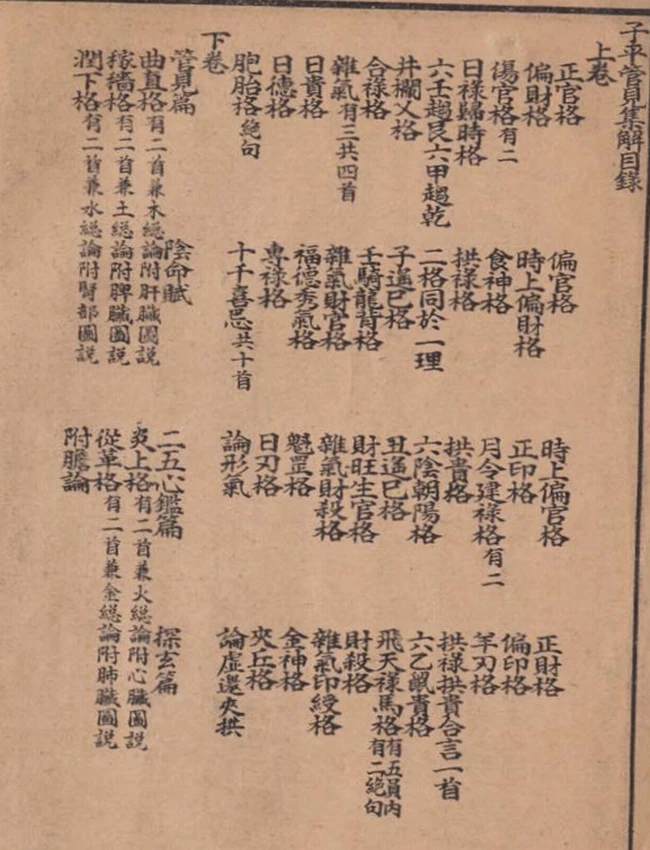 子平管見集解目錄
上卷
正官格 偏官格 時上偏官格 正財格
偏財格 時上偏財格 正印格 偏印格
傷官格有二 食神格 月令建祿格有二 羊刃格
日祿歸時格 拱祿格 拱貴格 拱祿拱貴合言一首
六壬趨艮六甲趨乾 二格同於一理 六陰朝陽格 六乙鼠貴格
井欄叉格 子遙巳格 丑遙巳格 飛天祿馬格有五員內有二絕句
合祿格 壬騎龍背格 財旺生官格 財殺格
雜氣有三共四首 雜氣財官格 雜氣財殺格 雜氣印綬格
日貴格 福德秀氣格 魁罡格 金神格
日德格 專祿格 日刃格 夾丘格
胞胎格絕句 十干喜忌共十首 論形氣 論虛邀夾拱
下卷
管見篇 陰命賦 二五心鑑篇 探玄篇
曲直格有二首兼木總論附肝臟圖說 炎上格有二首兼火總論附心臟圖說
稼穡格有二首兼土總論附脾臟圖說 從革格有二首兼金總論附肺臟圖說
潤下格有二首兼水總論附腎部圖說 附膽論